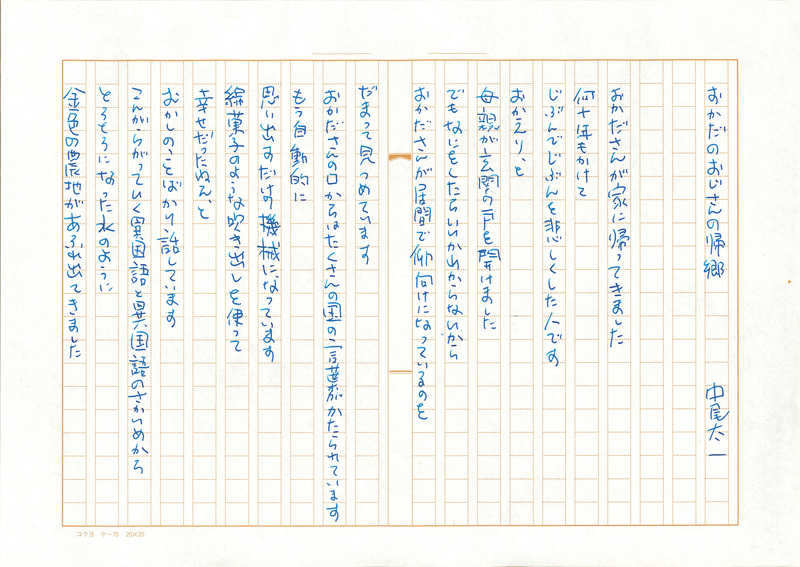 おかだのおじさんの帰郷
中尾太一
おかださんが家に帰ってきました
何十年もかけて
じぶんでじぶんを悲しくした人です
おかえり、と
母親が玄関の戸を開けました
でもなにをしたらいいかわからないから
おかださんが居間で仰向けになっているのを
だまって見つめています
おかださんの口からはたくさんの国の言葉がかたられています
もう自動的に
思い出すだけの機械になっています
綿菓子のような吹き出しを使って
幸せだったねえ、と
むかしのことばかり話しています
こんがらがっていく異国語と異国語のさかいめから
とろとろになった水のように
金色の農地があふれ出てきました
コクヨ ケー70 20×20